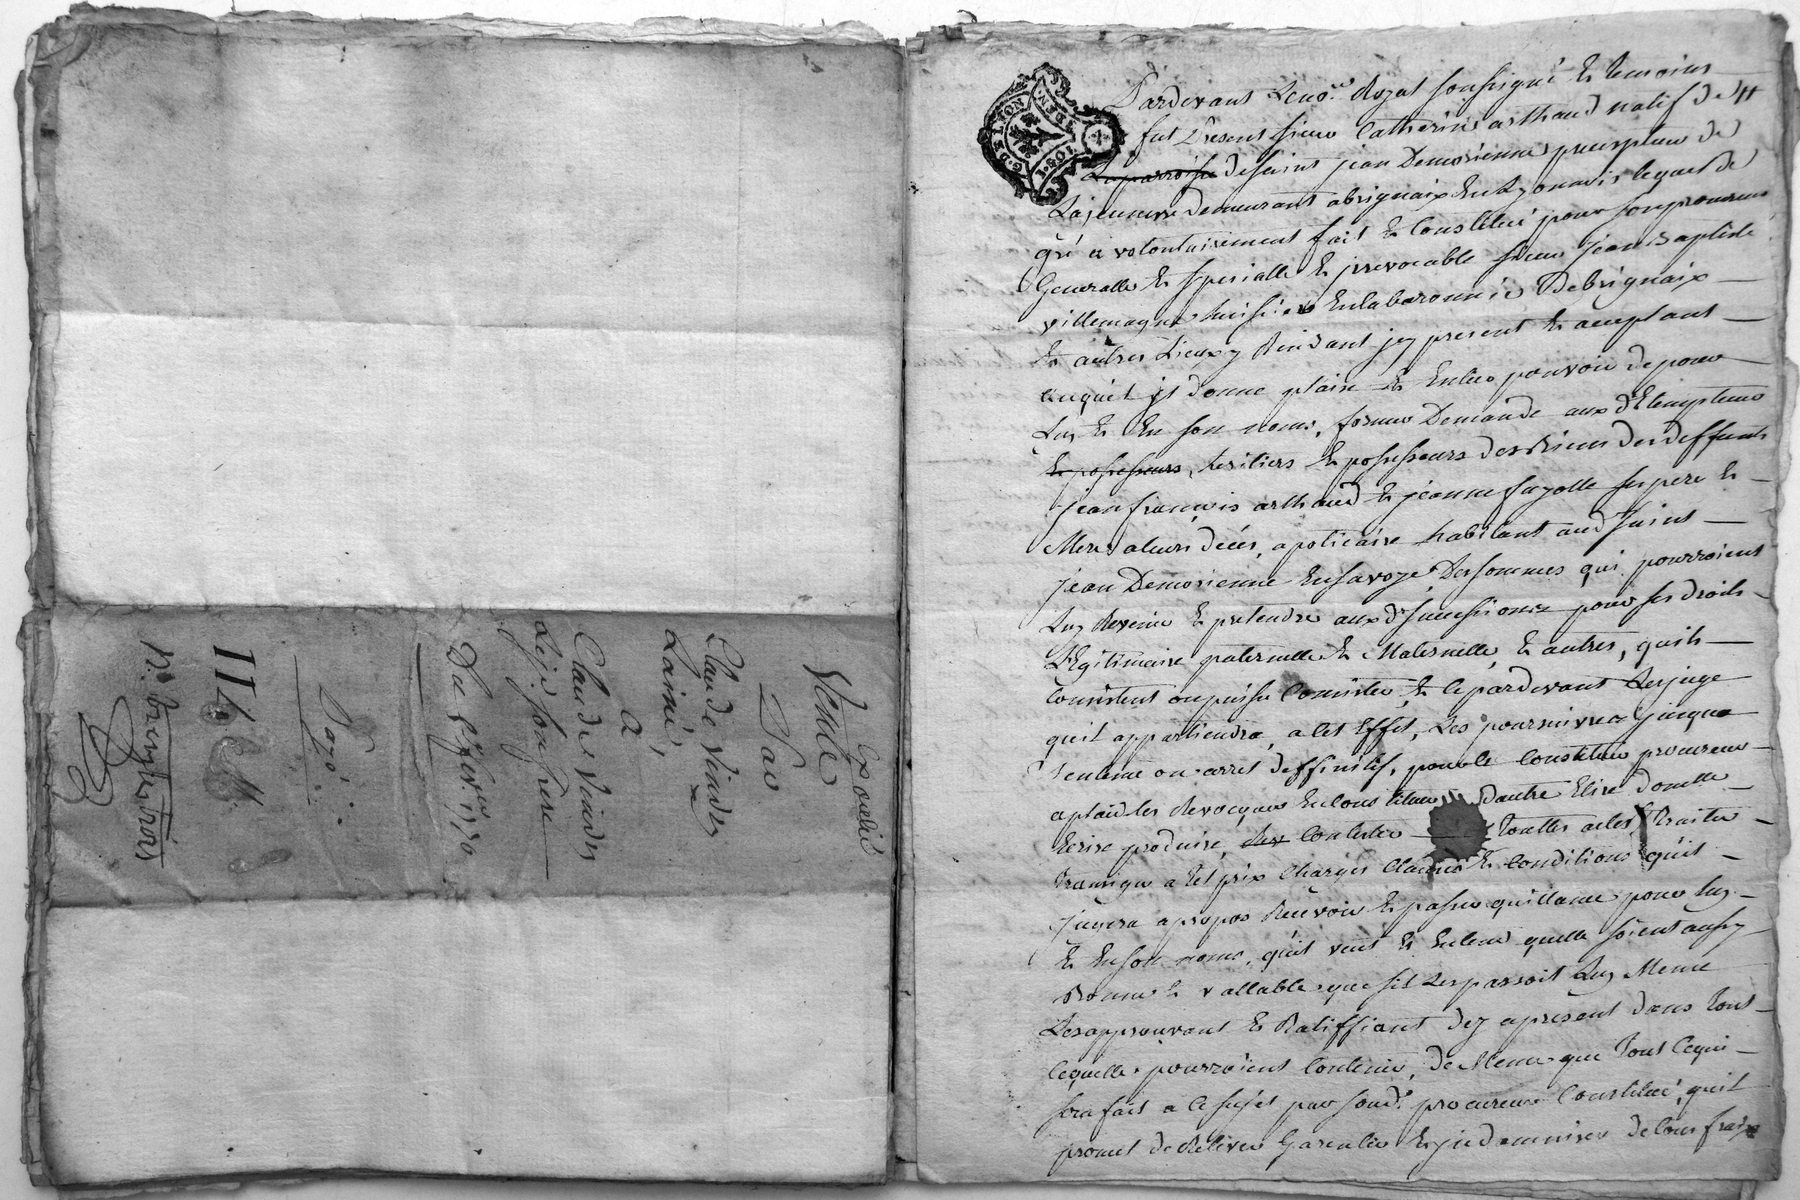 Expedié
Vente
Par
Claude Vindry
Lainé,
A
Claude Vindry
Leje. son frere
Du 1770
Payé
114
n.º Cinq
G. DE LYON
Pardevant Leno.re Royal soussigné Et temoins
fut Present sieur Catherin arthaud natif de
Laparroisse desaint jean Demorienne precepteur de
Lajeunesse demeurant abrignaix En Lyonnois lequel de
gré a volontairement fait Et Constitué pour son procureur
General Et special Et jrrevocable sieur jean Baptiste
villemagne huissier Enlabaronnie Debrignaix
Et autres Lieux y Residant jcy present Et aceptant
auquel jl donne plain Et Entier pouvoir de pour
Luy Et En son nom, former Demande aux detempteurs
Et possesseurs, heritiers Et possesseurs des Biens des deffunts
jean françois arthaud Et jeanne fayolle ses pere Et
Mere a leurs décés, apoticaire habitant aud saint
jean Demorienne En savoye, Des sommes qui pourroient
Luy Revenir Et pretendre aux d. successions pour ses droits
Legitimaire paternelle Et Maternelle, Et autres, quils
Consistent ou puisse Consister, Et ce pardevant Les juge
quil appartiendra, a cet Effet, Les poursuivre jusqua
sentence ou arret deffinitif, pour ce Constituer procureur
aplaid les Revoquer En constituer Dautre Elire Domlle
Ecrire produire, Contester Touttes actes, Traiter
Transiger a tel prix Charges Clauses Et Conditions quil
jugera apropos Recevoir Et passer quittance pour luy
Et En son nom, quil veut Et Entend quelle soient aussy
Bonne Et vallable que sil Les passoit Luy Meme
Les approuvant Et Ratiffiant dez apresent dans tout
cequelle pourroient Contenir, de Meme que Tout Cequi
sera fait a ce sujet par son d. procureur Constitué, quil
promet de Relever Garentir Et jndemniser de tous frais